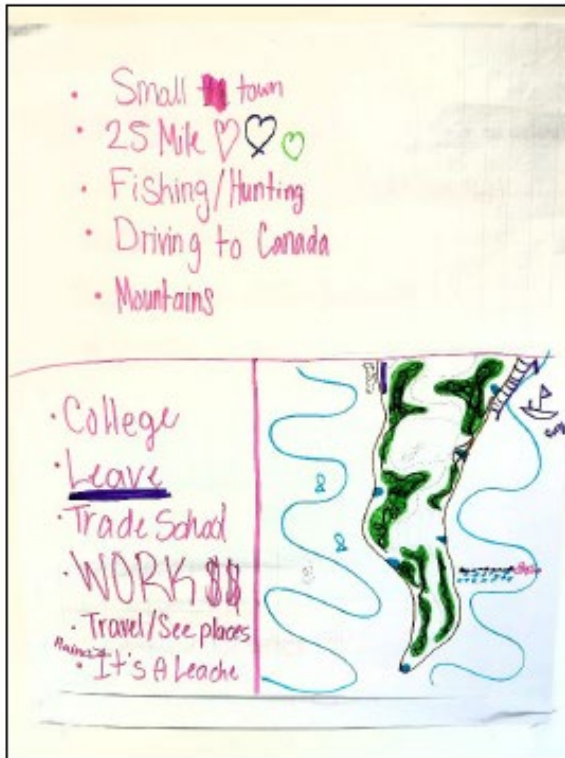 • Small town
• 25 Mile
• Fishing/Hunting
• Driving to Canada
• Mountains
• College
• Leave
• Trade School
• WORK $$
• Travel/See places
• It's A Leache